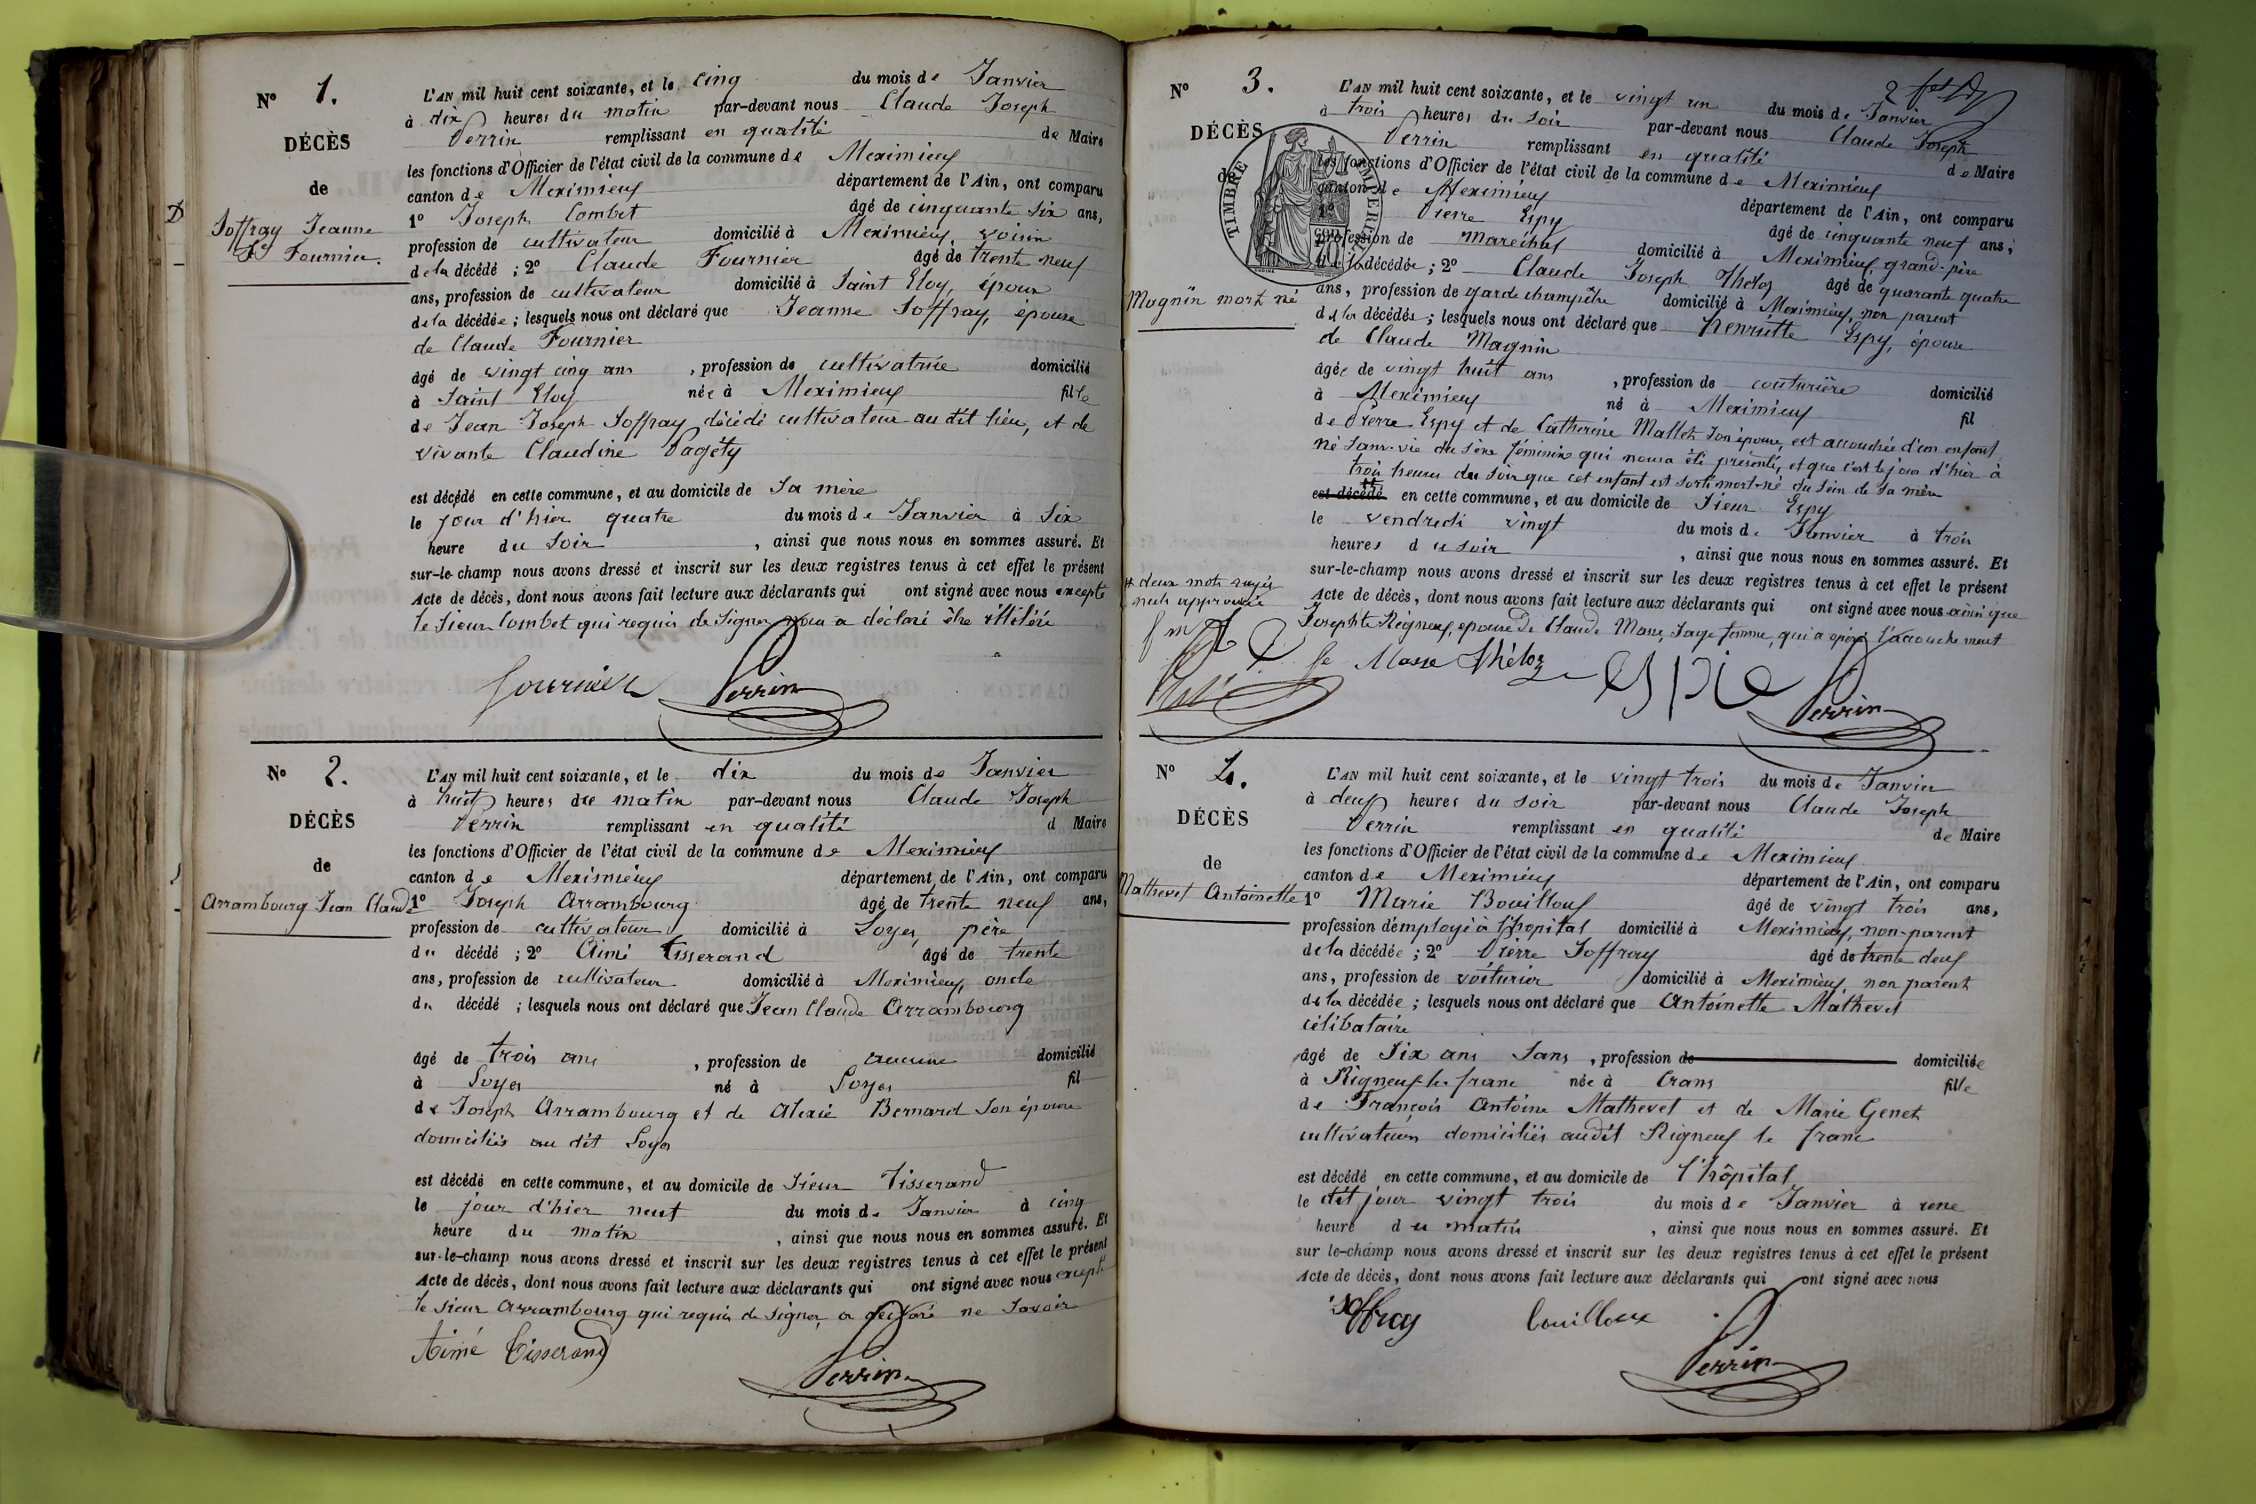 N° 1.
DÉCÈS
de
Joffray Jeanne
fe Fournier.
L'AN mil huit cent soixante, et le cinq du mois de Janvier
à dix heures du matin par-devant nous Claude Joseph
Perrin remplissant en qualité de Maire
les fonctions d'Officier de l'état civil de la commune de Meximieux
canton de Meximieux département de l'Ain, ont comparu
1° Joseph Combet âgé de cinquante six ans,
profession de cultivateur domicilié à Meximieux, voisin
de la décédé ; 2° Claude Fournier âgé de trente neuf
ans, profession de cultivateur domicilié à Saint Eloy, époux
de la décédée ; lesquels nous ont déclaré que Jeanne Joffray, épouse
de Claude Fournier
âgé de vingt cinq ans , profession de cultivatrice domicilié
à Saint Eloy née à Meximieux fille
de Jean Joseph Joffray décédé cultivateur au dit lieu, et de
vivante Claudine Pagéty
est décédé en cette commune, et au domicile de sa mère
le jour d'hier quatre du mois de Janvier à six
heure du soir , ainsi que nous nous en sommes assuré. Et
sur-le-champ nous avons dressé et inscrit sur les deux registres tenus à cet effet le présent
Acte de décès, dont nous avons fait lecture aux déclarants qui ont signé avec nous excepté
le sieur Combet qui requis de signer nous a déclaré être illitéré
fournier Perrin
N° 2.
DÉCÈS
de
Arrambourg Jean Claude
L'AN mil huit cent soixante, et le dix du mois de Janvier
à huit heures du matin par-devant nous Claude Joseph
Perrin remplissant en qualité d Maire
les fonctions d'Officier de l'état civil de la commune de Meximieux
canton de Meximieux département de l'Ain, ont comparu
1° Joseph Arrambourg âgé de trente neuf ans,
profession de cultivateur domicilié à Loyes, père
du décédé ; 2° Aimé Tisserand âgé de trente
ans, profession de cultivateur domicilié à Meximieux, oncle
du décédé ; lesquels nous ont déclaré que Jean Claude Arrambourg
âgé de trois ans , profession de aucune domicilié
à Loyes né à Loyes fil
de Joseph Arrambourg et de Alexie Bernard son épouse
domiciliés au dit Loyes
est décédé en cette commune, et au domicile de sieur Tisserand
le jour d'hier neuf du mois de Janvier à cinq
heure du matin , ainsi que nous nous en sommes assuré. Et
sur-le-champ nous avons dressé et inscrit sur les deux registres tenus à cet effet le présent
Acte de décès, dont nous avons fait lecture aux déclarants qui ont signé avec nous excepté
le sieur Arrambourg qui requis de signer, a déclaré ne savoir
Aimé Tisserand Perrin
N° 3.
DÉCÈS
de
TIMBRE IMPERIAL
Magnin mort né
L'AN mil huit cent soixante, et le vingt un du mois de Janvier
à trois heures du soir par-devant nous Claude Joseph
Perrin remplissant en qualité de Maire
les fonctions d'Officier de l'état civil de la commune de Meximieux
canton de Meximieux département de l'Ain, ont comparu
1° Pierre Espy âgé de cinquante neuf ans,
profession de maréchal domicilié à Meximieux, grand-père
de la décédée ; 2° Claude Joseph Théloz âgé de quarante quatre
ans, profession de garde champêtre domicilié à Meximieux, non parent
de la décédée ; lesquels nous ont déclaré que henriette Espy, épouse
de Claude Magnin
âgée de vingt huit ans , profession de couturière domicilié
à Meximieux né à Meximieux fil
de Pierre Espy et de Catherine Mallet son épouse, est accouchée d'un enfant
né sans vie du sexe féminin qui nous a été présenté, et que c'est le jour d'hier à
trois heures du soir que cet enfant est sorti mort-né du sein de sa mère
est décédé en cette commune, et au domicile de sieur Espy
le vendredi vingt du mois de Janvier à trois
heures du soir , ainsi que nous nous en sommes assuré. Et
sur-le-champ nous avons dressé et inscrit sur les deux registres tenus à cet effet le présent
# deux mots rayés
nuls approuvés
Acte de décès, dont nous avons fait lecture aux déclarants qui ont signé avec nous ainsi que
Josephte Rigneux, épouse de Claude Masse, sage femme, qui a opéré l'accouchement
fe Masse Théloz espie Perrin
N° 4.
DÉCÈS
de
Mathevet Antoinette
L'AN mil huit cent soixante, et le vingt trois du mois de Janvier
à deux heures du soir par-devant nous Claude Joseph
Perrin remplissant en qualité de Maire
les fonctions d'Officier de l'état civil de la commune de Meximieux
canton de Meximieux département de l'Ain, ont comparu
1° Marie Bouilloux âgé de vingt trois ans,
profession d'employé à l'hopital domicilié à Meximieux, non-parent
de la décédée ; 2° Pierre Joffray âgé de trente deux
ans, profession de voiturier domicilié à Meximieux, non parent
de la décédée ; lesquels nous ont déclaré que Antoinette Mathevet
célibataire
âgé de six ans sans , profession de domiciliée
à Rigneux-le-franc née à Crans fille
de François Antoine Mathevet et de Marie Genet
cultivateurs domiciliés audit Rigneux le franc
est décédé en cette commune, et au domicile de l'hôpital
le dit jour vingt trois du mois de Janvier à une
heure du matin , ainsi que nous nous en sommes assuré. Et
sur le-champ nous avons dressé et inscrit sur les deux registres tenus à cet effet le présent
Acte de décès, dont nous avons fait lecture aux déclarants qui ont signé avec nous
Joffray bouilloux Perrin